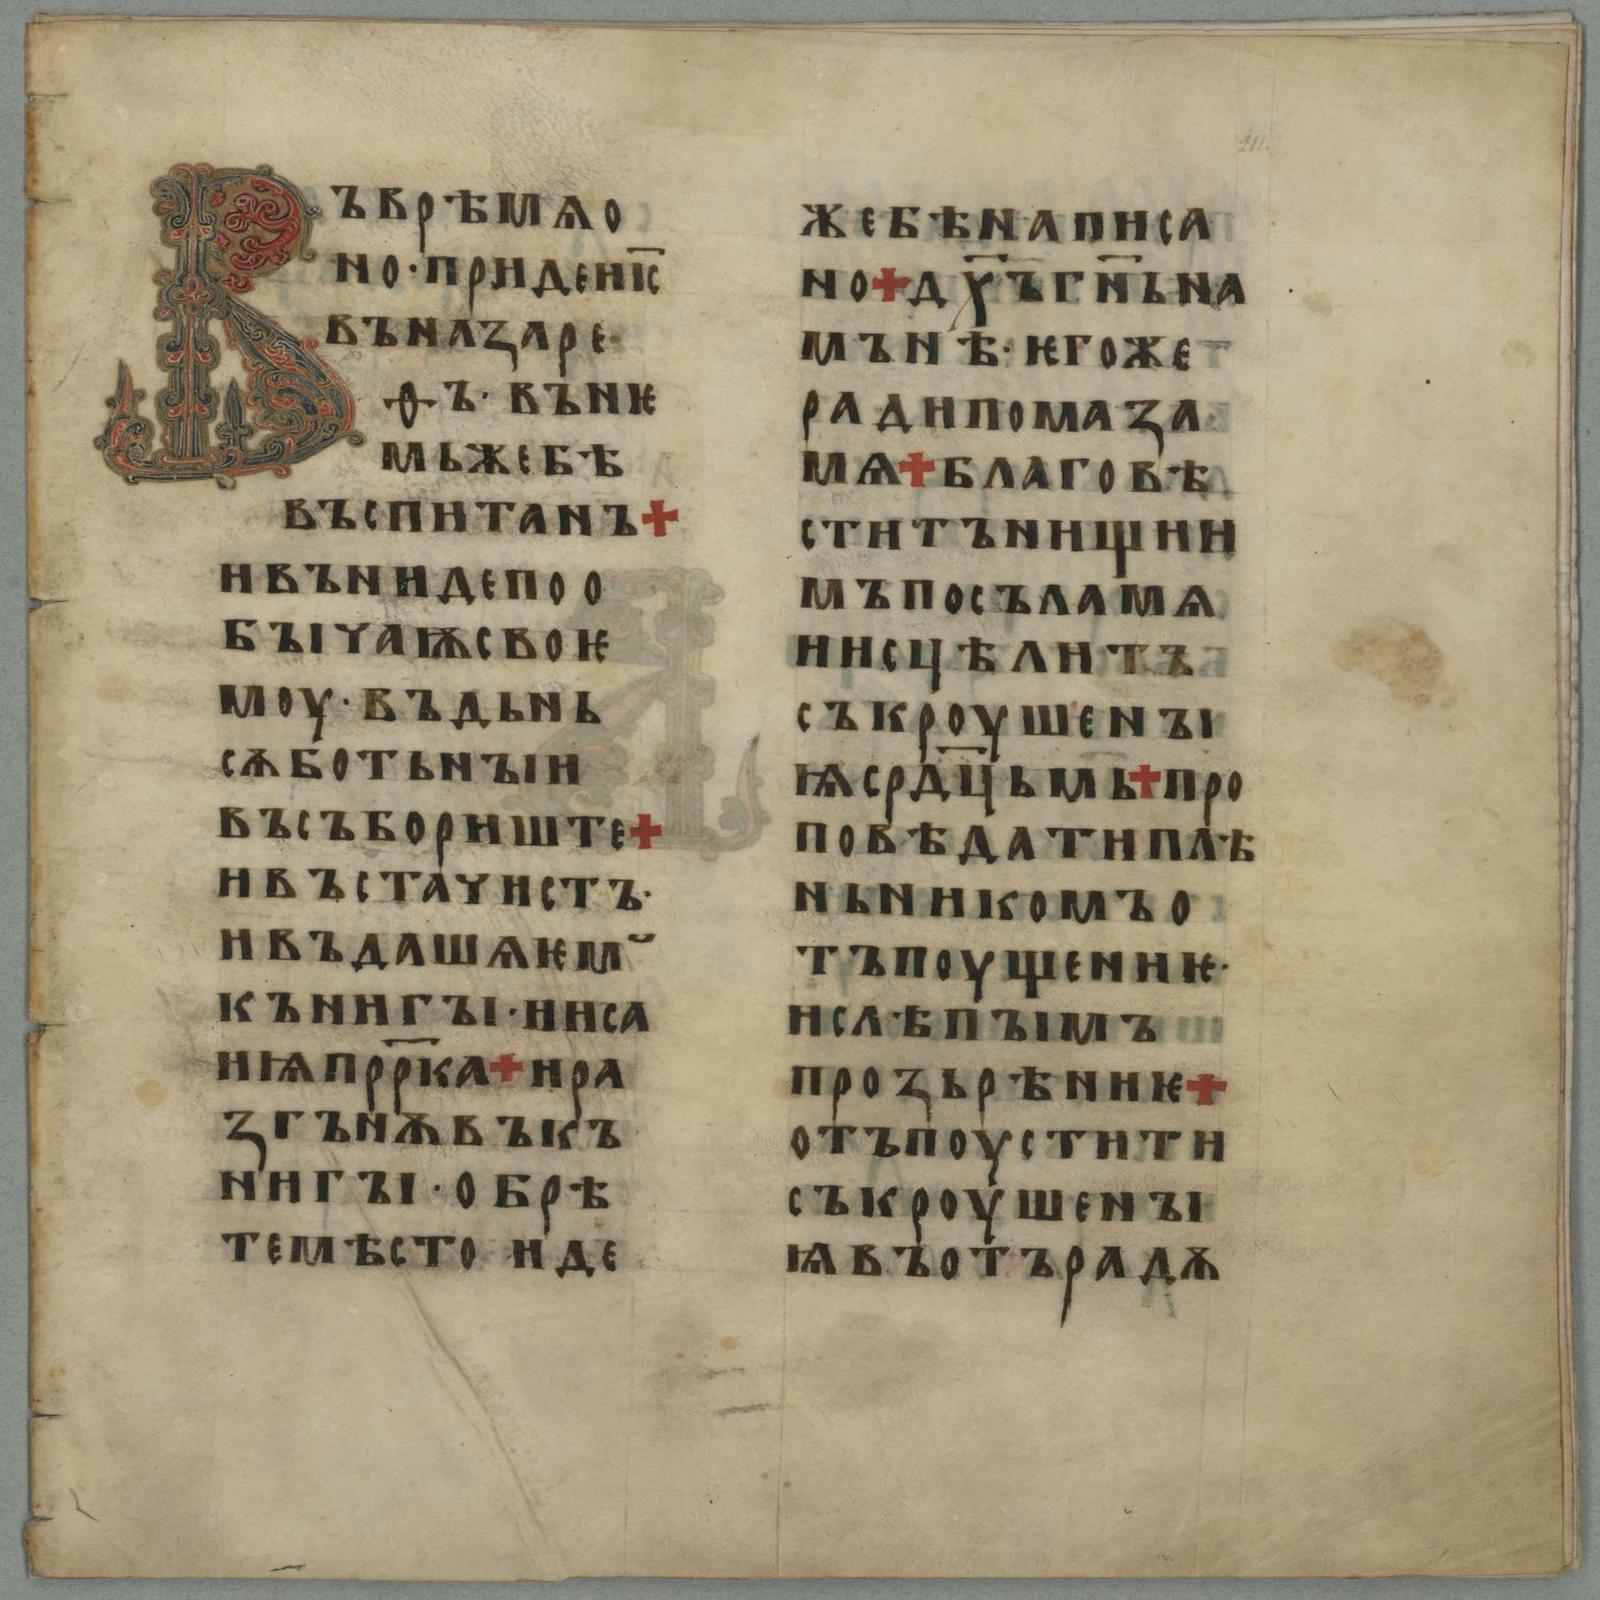 Въврѣмѧо
но·придеи҃с
въназаре
ѳъ·вънѥ
мьжебѣ
въспитанъ+
ивъниидепоо
бъıчаѭсвоѥ
моу·въдьнь
сѫботьнъıи
въсъбориште+
ивъстачистъ·
ивъдашѧѥм
кънигъı·ииса
иѩпрр҃ка+ира
згънѫвъкъ
нигъı·обрѣ
темѣсто иде
жебѣнаписа
но+дх҃ъгн҃ьна
мънѣ·ѥгоже
радипомаза
мѧ+благовѣ
ститънищии
мъпосъламѧ
иисцѣлитъ
съкроушенъı
ѩсрд҃цьмь+про
повѣдатиплѣ
ньникомъо
тъпоущениѥ·
ислѣпъıмъ
прозьрѣниѥ+
отъпоустити
съкроушенъı
ѩвъотърадѫ